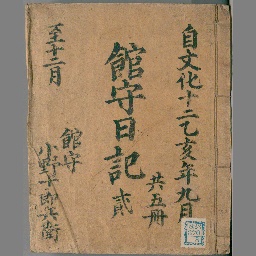 自文化十二乙亥年九月
共五冊
館守日記 貳
至十二月
館守
小野十郎兵衛